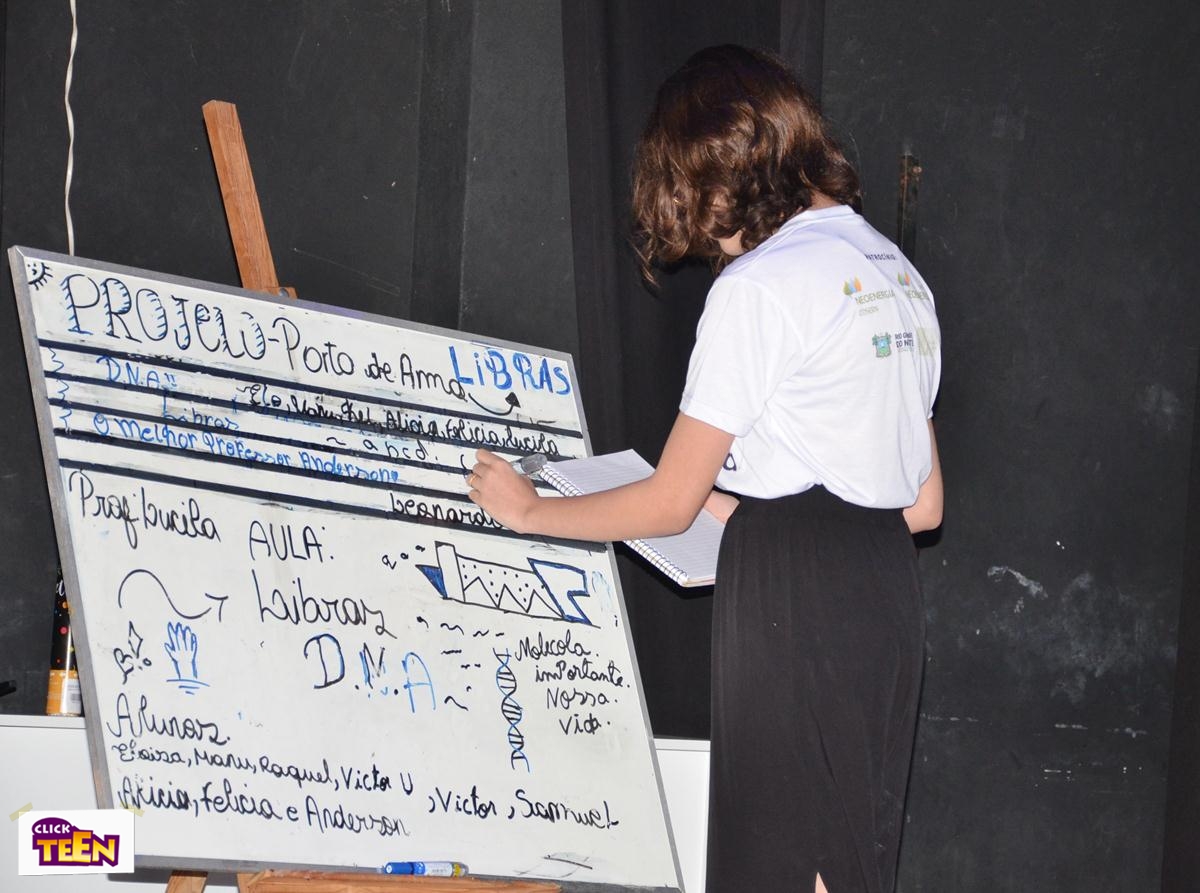 PROJELO-Porto de Ama LiBRAS
D.N.A!!
Elo, Manu, Alicia, Felicia, Lucila
Libras
~ a b c d.
O Melhor Professor Anderson
Leonardo
Prof Lucila AULA:
Libraz
D.N.A
Molicola.
imPortante.
Nossa.
Vida.
Alunoz.
Eloiza, Manu, Raquel, Victor U, Victor, Samuel
Alicia, Felicia e Anderson
NEOENERGIA
COSERN
NEOENERGIA
RIO GRANDE
DO NORTE
CLICK
TEEN